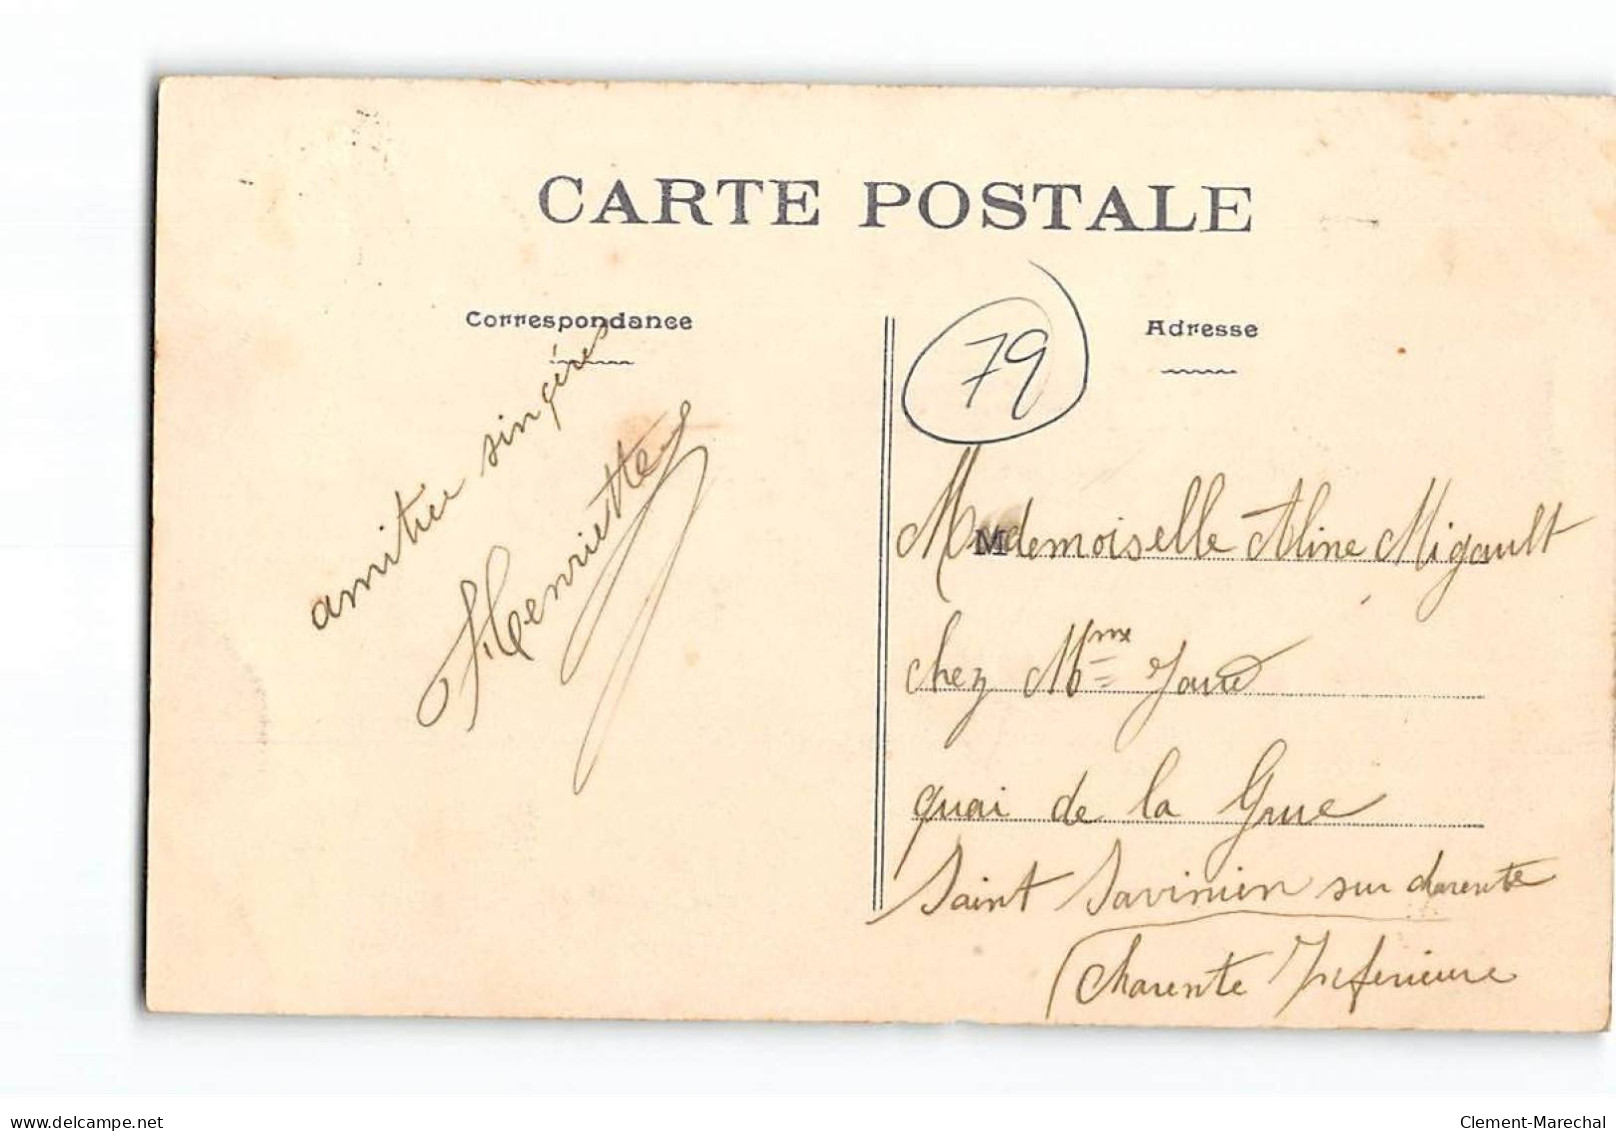 CARTE POSTALE
Correspondance
amitiée singères
Henriette
Adresse
79
M
Mademoiselle Aline Migault
chez Mme
quai de la Grue
Saint Savinien sur charente
Charente Inferieure
www.delcampe.net
Clement-Marechal